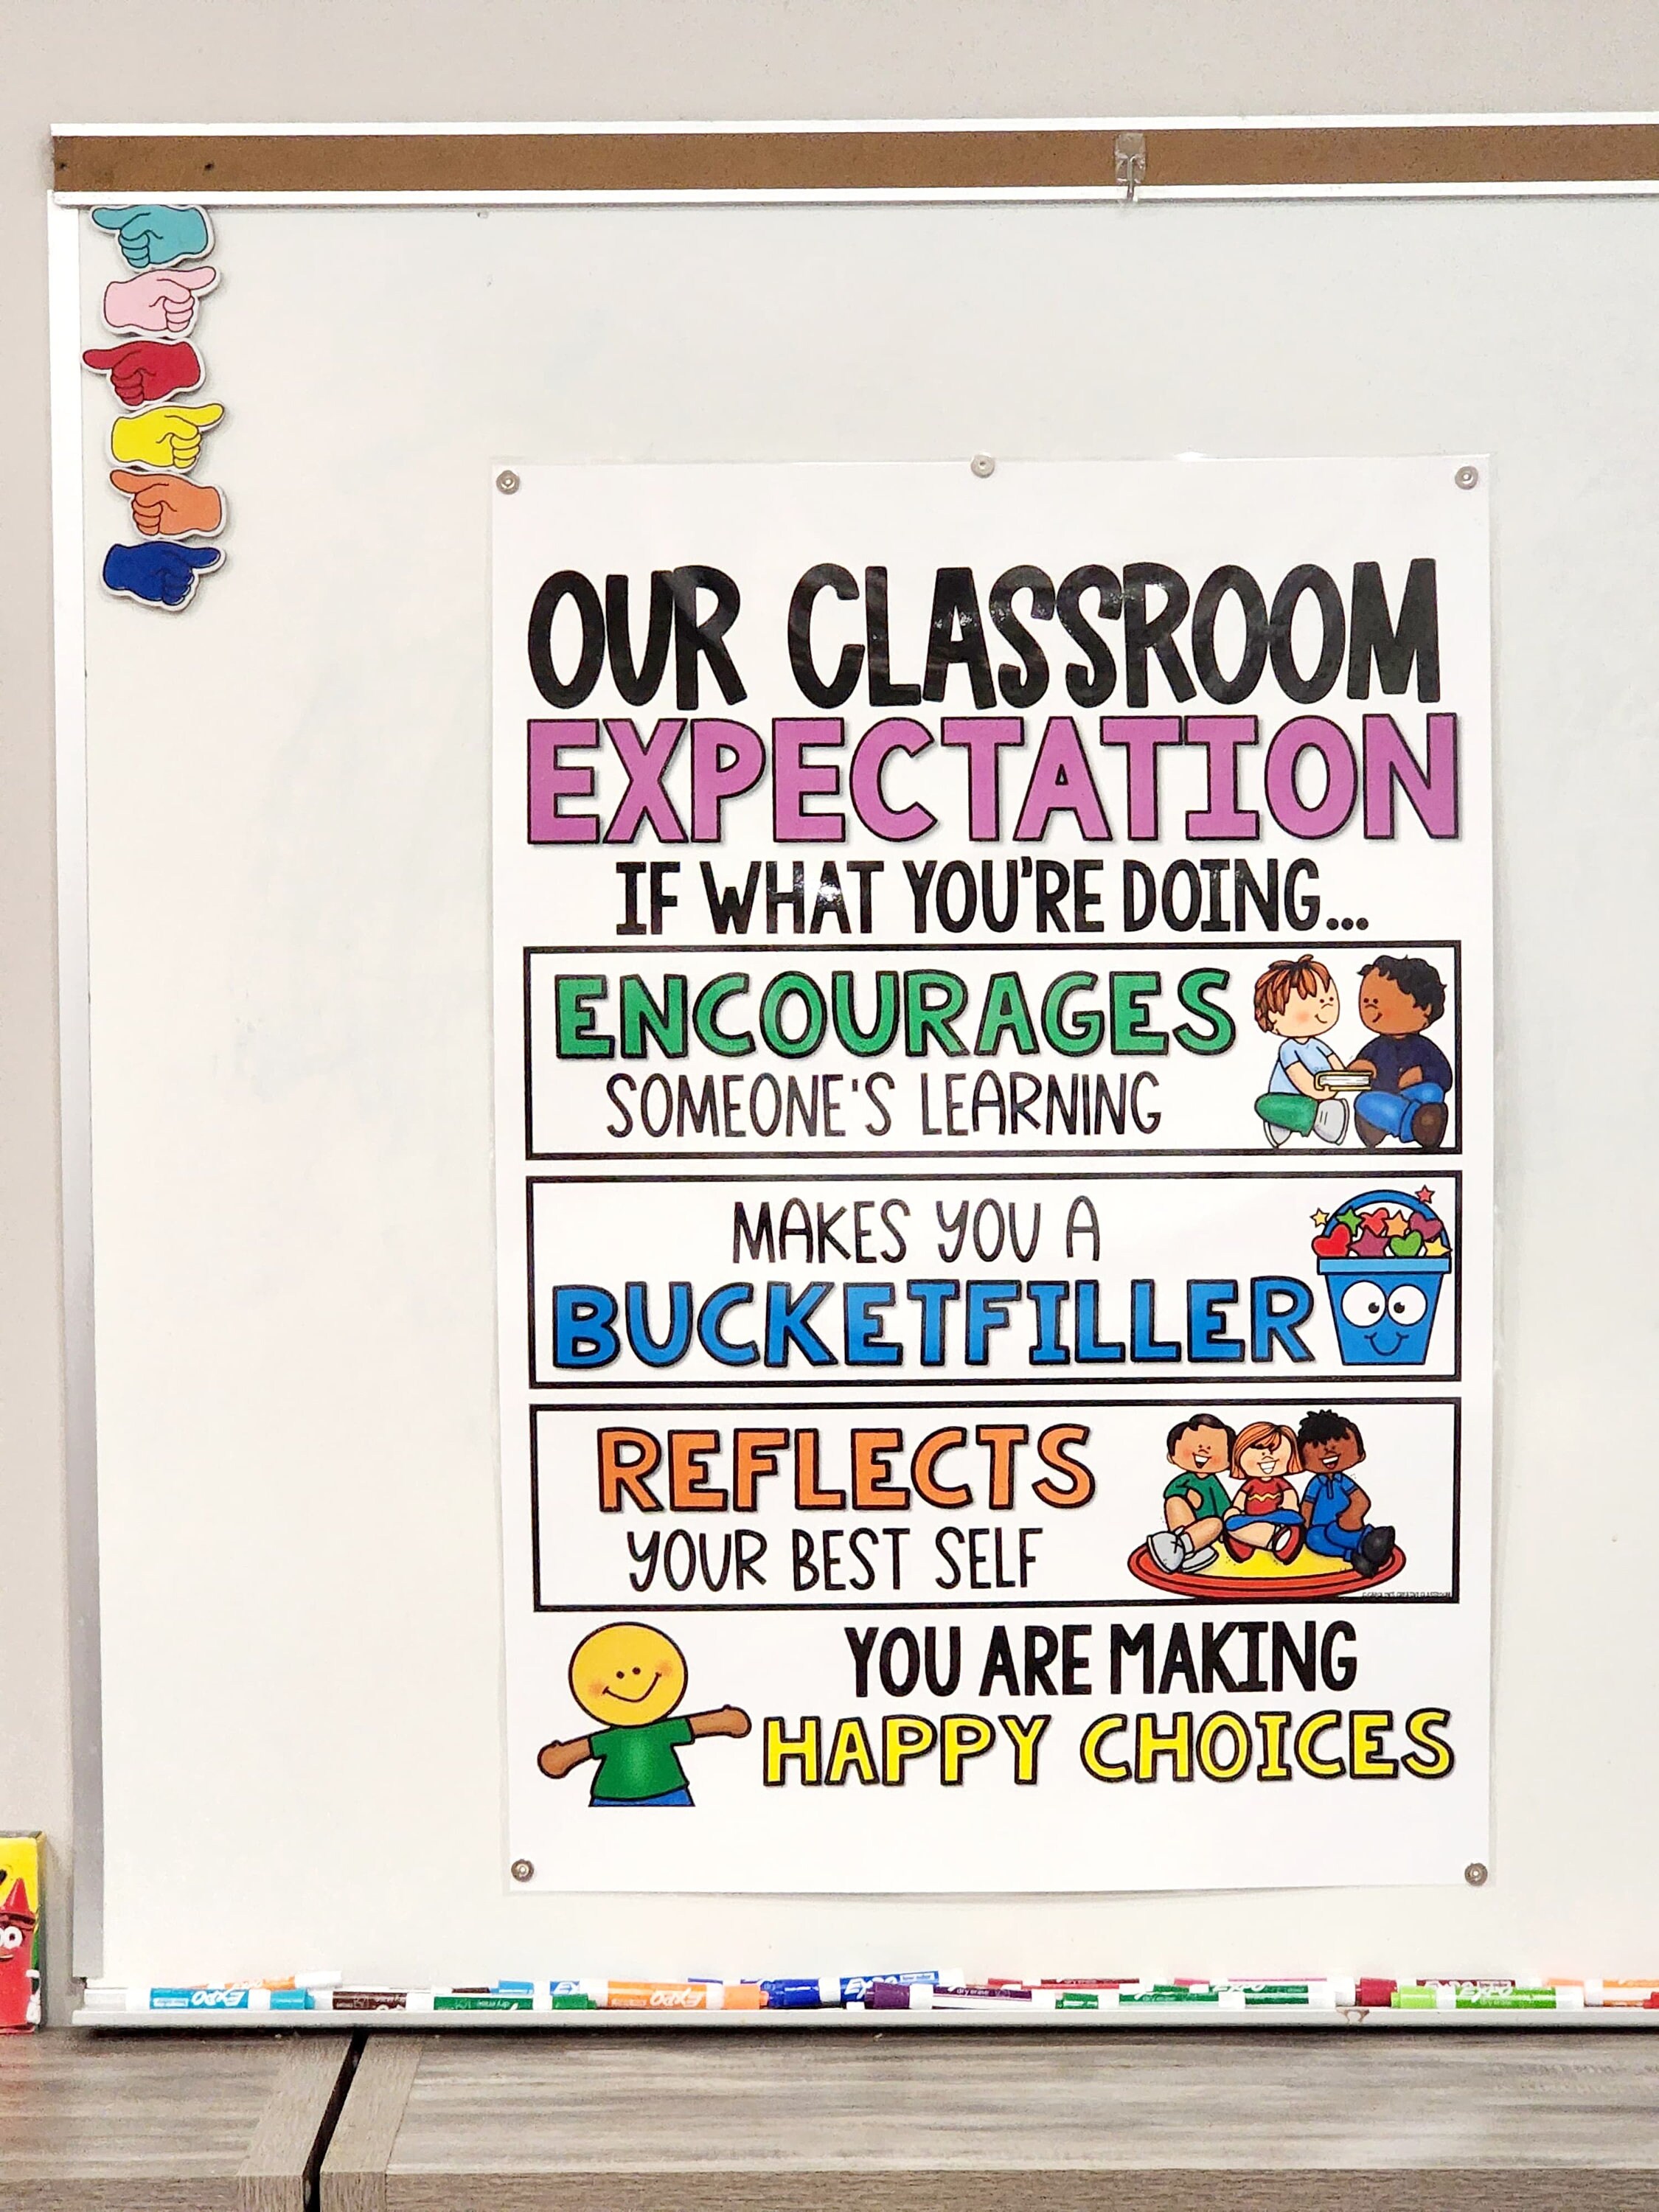 OUR CLASSROOM
EXPECTATION
IF WHAT YOU'RE DOING...
ENCOURAGES
SOMEONE'S LEARNING
MAKES YOU A
BUCKETFILLER
REFLECTS
YOUR BEST SELF
YOU ARE MAKING
HAPPY CHOICES
EXPO
EXPO
EXPO
EXPO